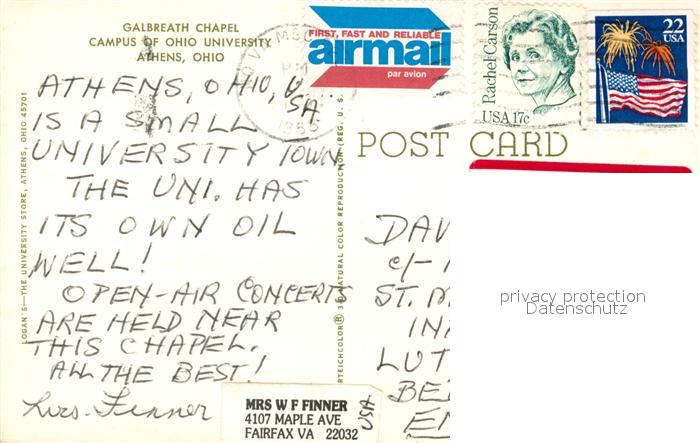 GALBREATH CHAPEL
CAMPUS OF OHIO UNIVERSITY
ATHENS, OHIO
FIRST, FAST AND RELIABLE
airmail
par avion
Rachel Carson
USA 17c
22
USA
POST CARD
ATHENS, OHIO, U
SA.
IS A SMALL
UNIVERSITY TOWN
THE UNI. HAS
ITS OWN OIL
WELL!
OPEN-AIR CONCERTS
ARE HELD NEAR
THIS CHAPEL.
ALL THE BEST!
Mrs. Finner
LOGAN'S—THE UNIVERSITY STORE, ATHENS, OHIO 45701
NATURAL COLOR REPRODUCTION (REG. U. S.
DAV
c/-
ST. M
IN
LUT
BE
EN
privacy protection
Datenschutz
MRS W F FINNER
4107 MAPLE AVE
FAIRFAX VA 22032
USA